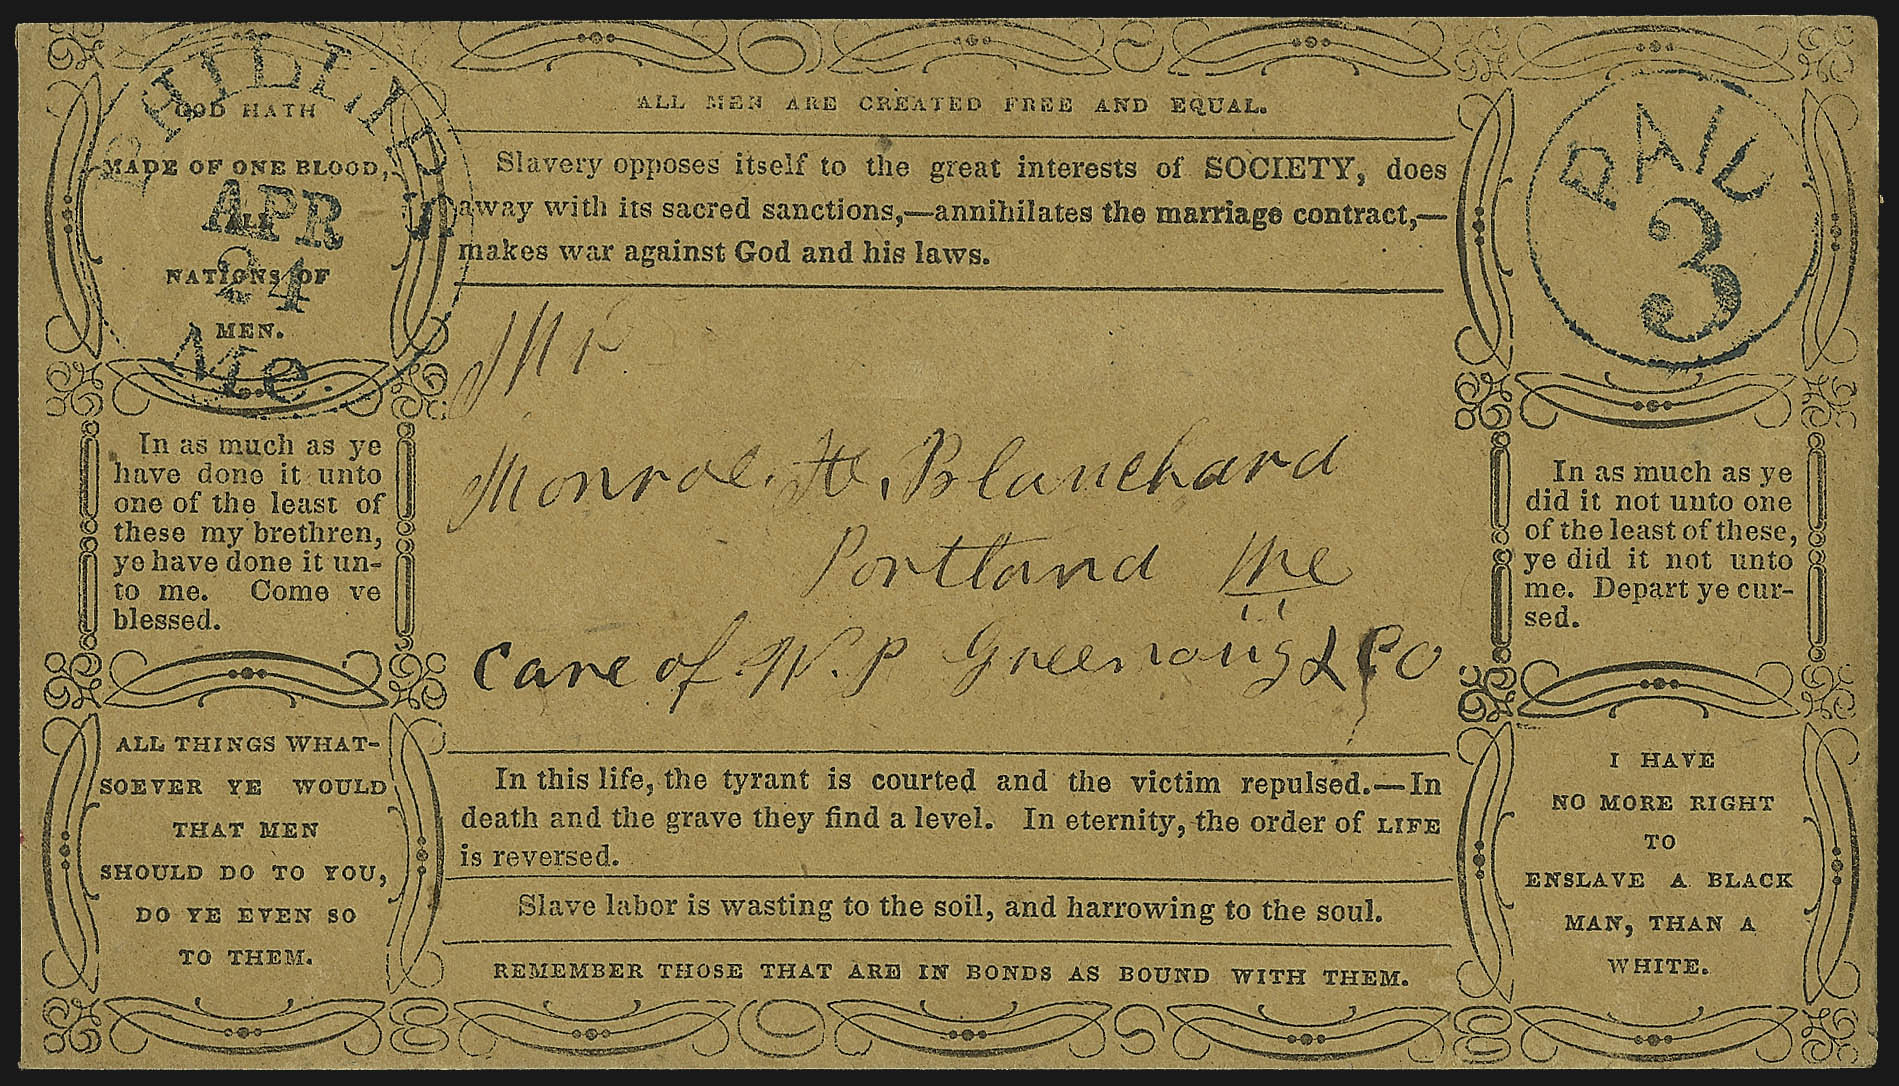 PHILLIPS
APR
24
Me.
GOD HATH
MADE OF ONE BLOOD,
ALL
NATIONS OF
MEN.
In as much as ye
have done it unto
one of the least of
these my brethren,
ye have done it un-
to me. Come ye
blessed.
ALL THINGS WHAT-
SOEVER YE WOULD
THAT MEN
SHOULD DO TO YOU,
DO YE EVEN SO
TO THEM.
ALL MEN ARE CREATED FREE AND EQUAL.
Slavery opposes itself to the great interests of SOCIETY, does
away with its sacred sanctions,—annihilates the marriage contract,—
makes war against God and his laws.
Mr
Monroe. H. Blanchard
Portland Me
Care of W. P Greenoug & CO
In this life, the tyrant is courted and the victim repulsed.—In
death and the grave they find a level. In eternity, the order of LIFE
is reversed.
Slave labor is wasting to the soil, and harrowing to the soul.
REMEMBER THOSE THAT ARE IN BONDS AS BOUND WITH THEM.
PAID
3
In as much as ye
did it not unto one
of the least of these,
ye did it not unto
me. Depart ye cur-
sed.
I HAVE
NO MORE RIGHT
TO
ENSLAVE A BLACK
MAN, THAN A
WHITE.